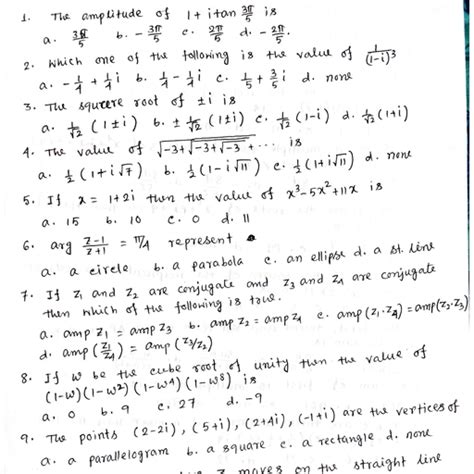 1. The amplitude of 1 + i tan 3π/5 is
a. 3π/5 b. - 3π/5 c. 2π/5 d. - 2π/5.
2. Which one of the following is the value of 1/(1-i)³
a. -1/4 + 1/4 i b. 1/4 - 1/4 i c. 1/5 + 3/5 i d. none
3. The square root of ±i is
a. 1/√2 (1±i) b. ± 1/√2 (1±i) c. 1/√2 (1-i) d. 1/√2 (1+i)
4. The value of √-3+√-3+√-3+... is
a. 1/2 (1+i√7) b. 1/2 (1-i√11) c. 1/2 (1+i√11) d. none
5. If x = 1+2i then the value of x³-5x²+11x is
a. 15 b. 10 c. 0 d. 11
6. arg z-1/z+1 = π/4 represent
a. a circle b. a parabola c. an ellipse d. a st. line
7. If z₁ and z₂ are conjugate and z₃ and z₄ are conjugate
then which of the following is true.
a. amp z₁ = amp z₃ b. amp z₂ = amp z₄ c. amp(z₁·z₄) = amp(z₂·z₃)
d. amp(z₁/z₄) = amp(z₃/z₂)
8. If w be the cube root of unity then the value of
(1-w)(1-w²)(1-w⁴)(1-w⁸) is
a. 0 b. 9 c. 27 d. -9
9. The points (2-2i), (5+i), (2+4i), (-1+i) are the vertices of
a. a parallelogram b. a square c. a rectangle d. none
z moves on the straight line